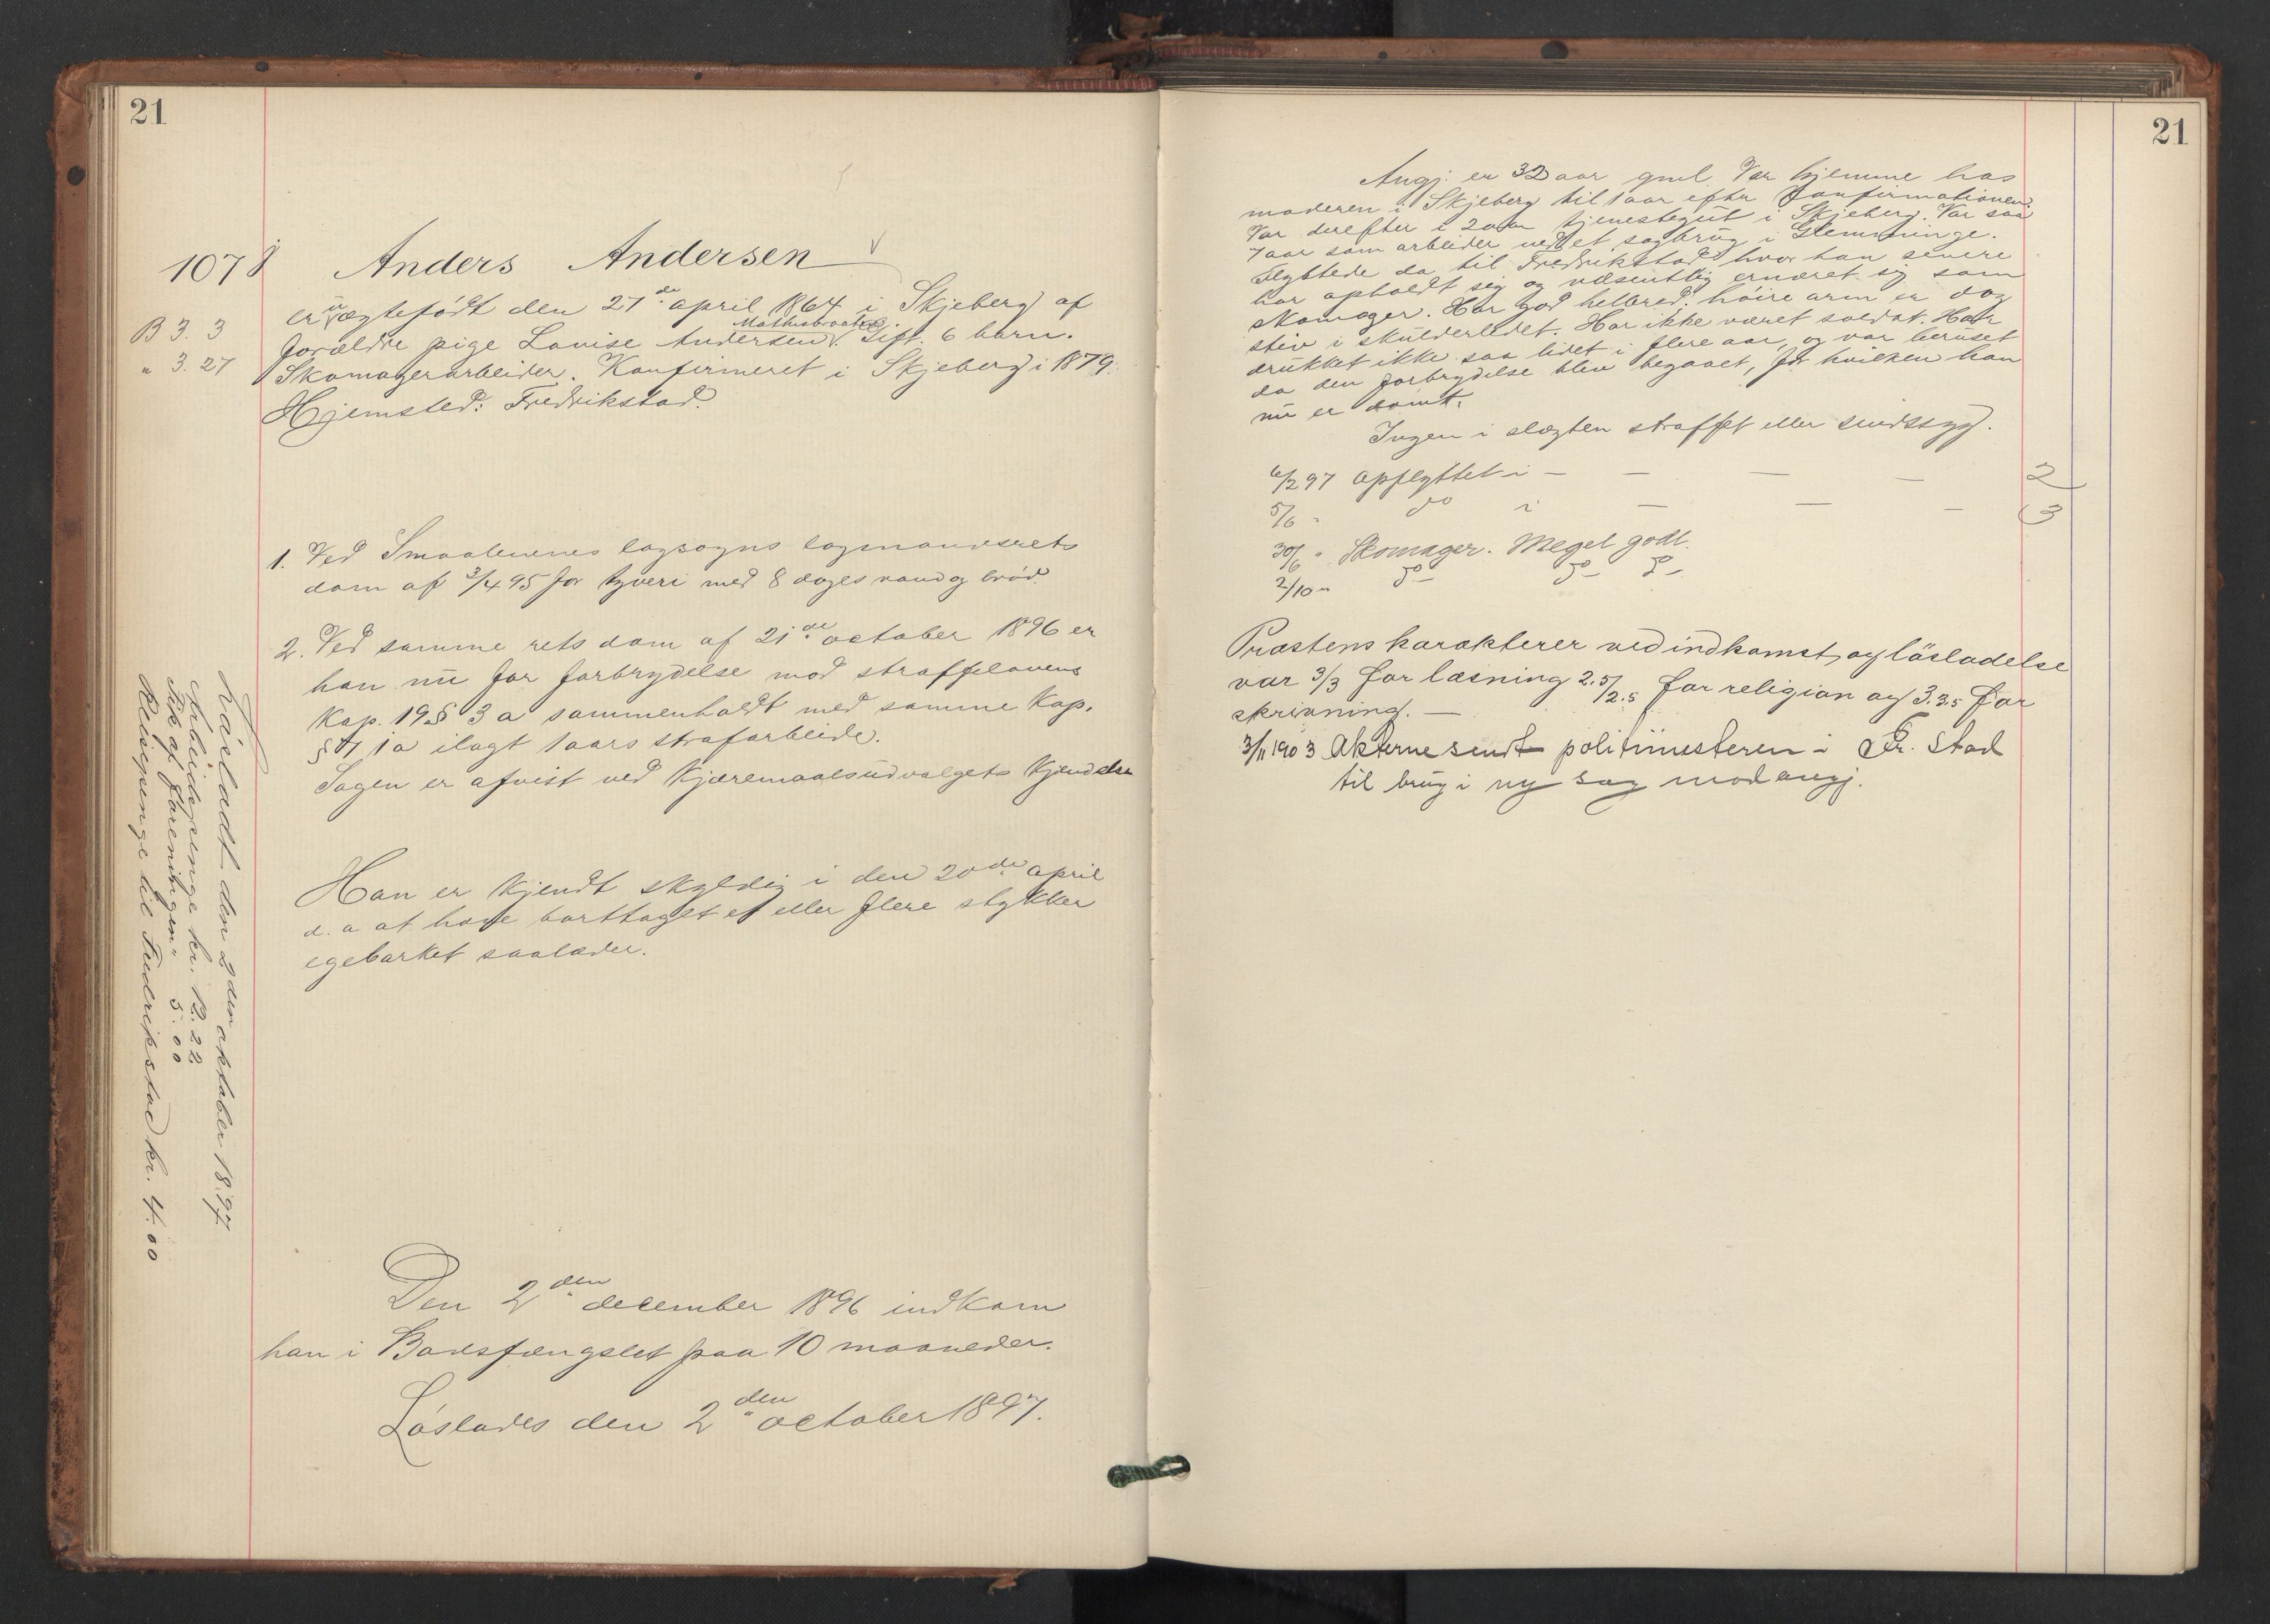 21
1078 Anders Andersen
er uægtefødt den 27de april 1864 i Skjeberg af
B 3. 3
forældre pige Lovise Andersen. Gift. 6 børn.
" 3. 27
Skomagerarbeider. Konfirmeret i Skjeberg i 1879.
Hjemsted: Fredrikstad.
1. Ved Smaalenenes lagsogns lagmandsrets
dom af 3/4 95 for tyveri med 8 dages vand og brød.
2. Ved samme rets dom af 21de october 1896 er
han nu for forbrydelse mod straffelovens
Kap. 19 § 3 a sammenholdt med samme Kap.
§ 7, 1a ilagt 1 aars strafarbeide.
Sagen er afvist ved Kjæremaalsudvalgets Kjendelse
Han er kjendt skyldig i den 20de april
d. a at have borttaget et eller flere stykker
egebarket saalæder.
Den 2den december 1896 indkom
han i Bodsfængslet paa 10 maaneder.
Løslades den 2den october 1897.
Løsladt den 2den oktober 1897.
Arbeidspenge kr. 12.22
Fik af foreningen " 5.00
Reisepenge til Fredrikstad kr. 4.00
21
Angj. er 32 aar gml. Var hjemme hos
moderen i Skjeberg til 1 aar efter konfirmationen.
Var derefter i 2 aar tjenestegut i Skjeberg. Var saa
7 aar som arbeider ved et sagbrug i Glemminge.
Flyttede da til Fredrikstad hvor han senere
har opholdt sig og væsentlig ernæret sig som
skomager. Har god helbred: høire arm er dog
stiv i skulderledet. Har ikke været soldat. Har
drukket ikke saa lidet i flere aar, og var beruset
da den forbrydelse blev begaaet, for hvilken han
nu er dømt.
Ingen i slægten straffet eller sindssyg.
6/2 97 opflyttet i — — — — 2
5/6 " do i — — — 3
30/6 " Skomager. Meget godt.
2/10 " do do do
Præstens karakterer ved indkomst og løsladelse
var 3/3 for læsning 2.5/2.5 for religion og 3.3.5 for
skrivning. —
3/11 1903 Akterne sendt politimesteren i Fr. stad
til brug i ny sag mod angj.